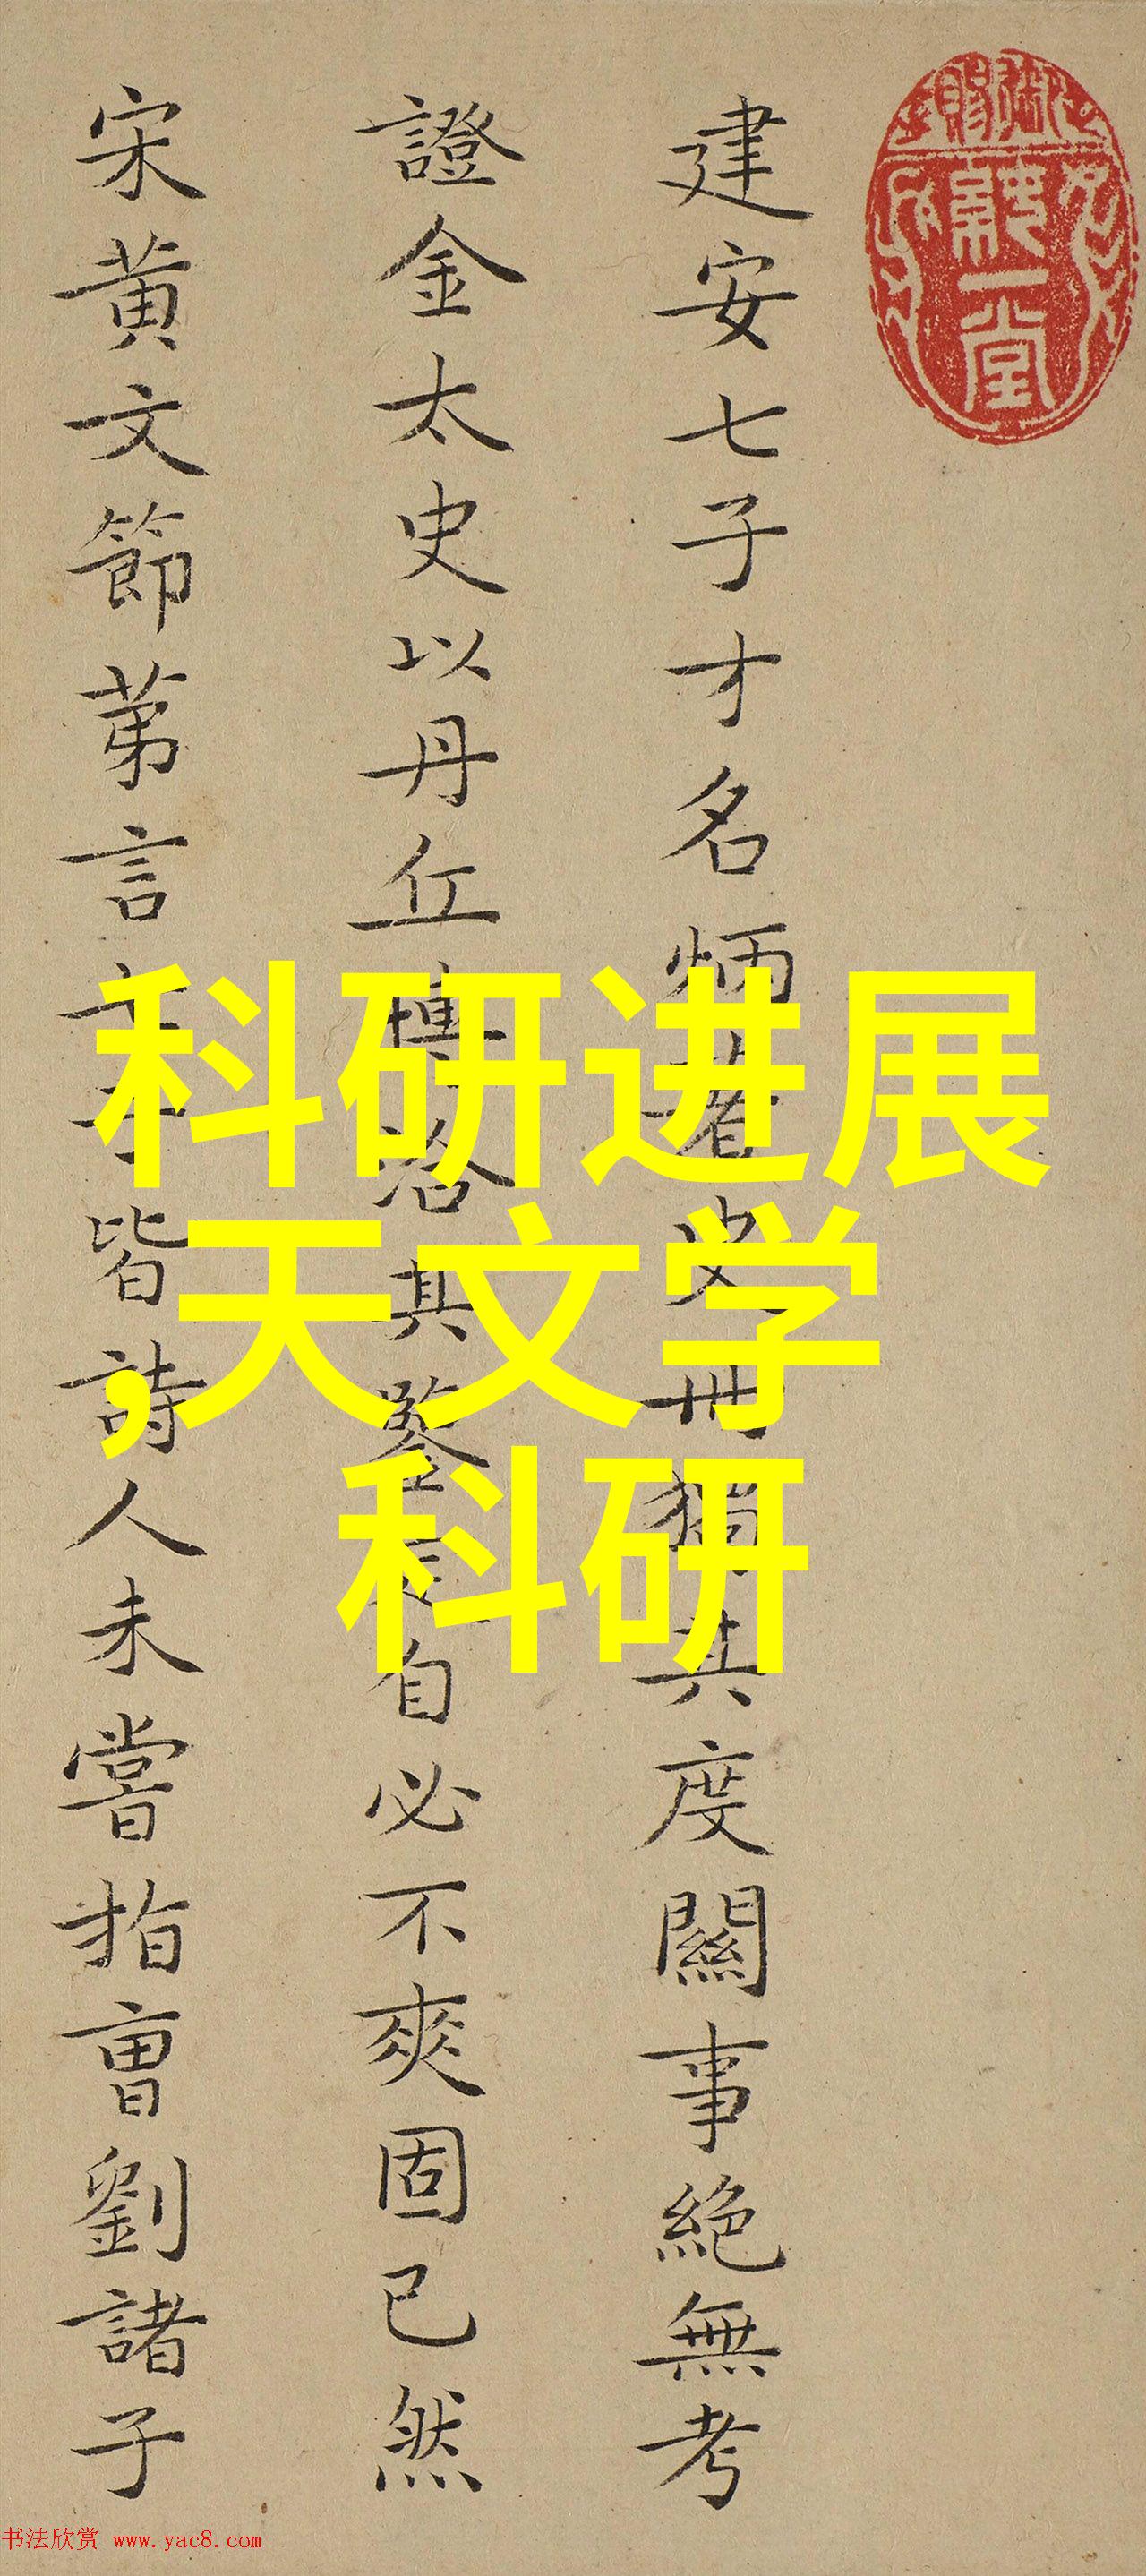 建安七子才名炳著史冊其度關事絕無考
證金太史以丹丘博洽其鑒定自必不爽固已然
宋黃文節苐言子皆詩人未嘗指曹劉諸子
科研进展
,天文学
科研
书法欣赏 www.yac8.com